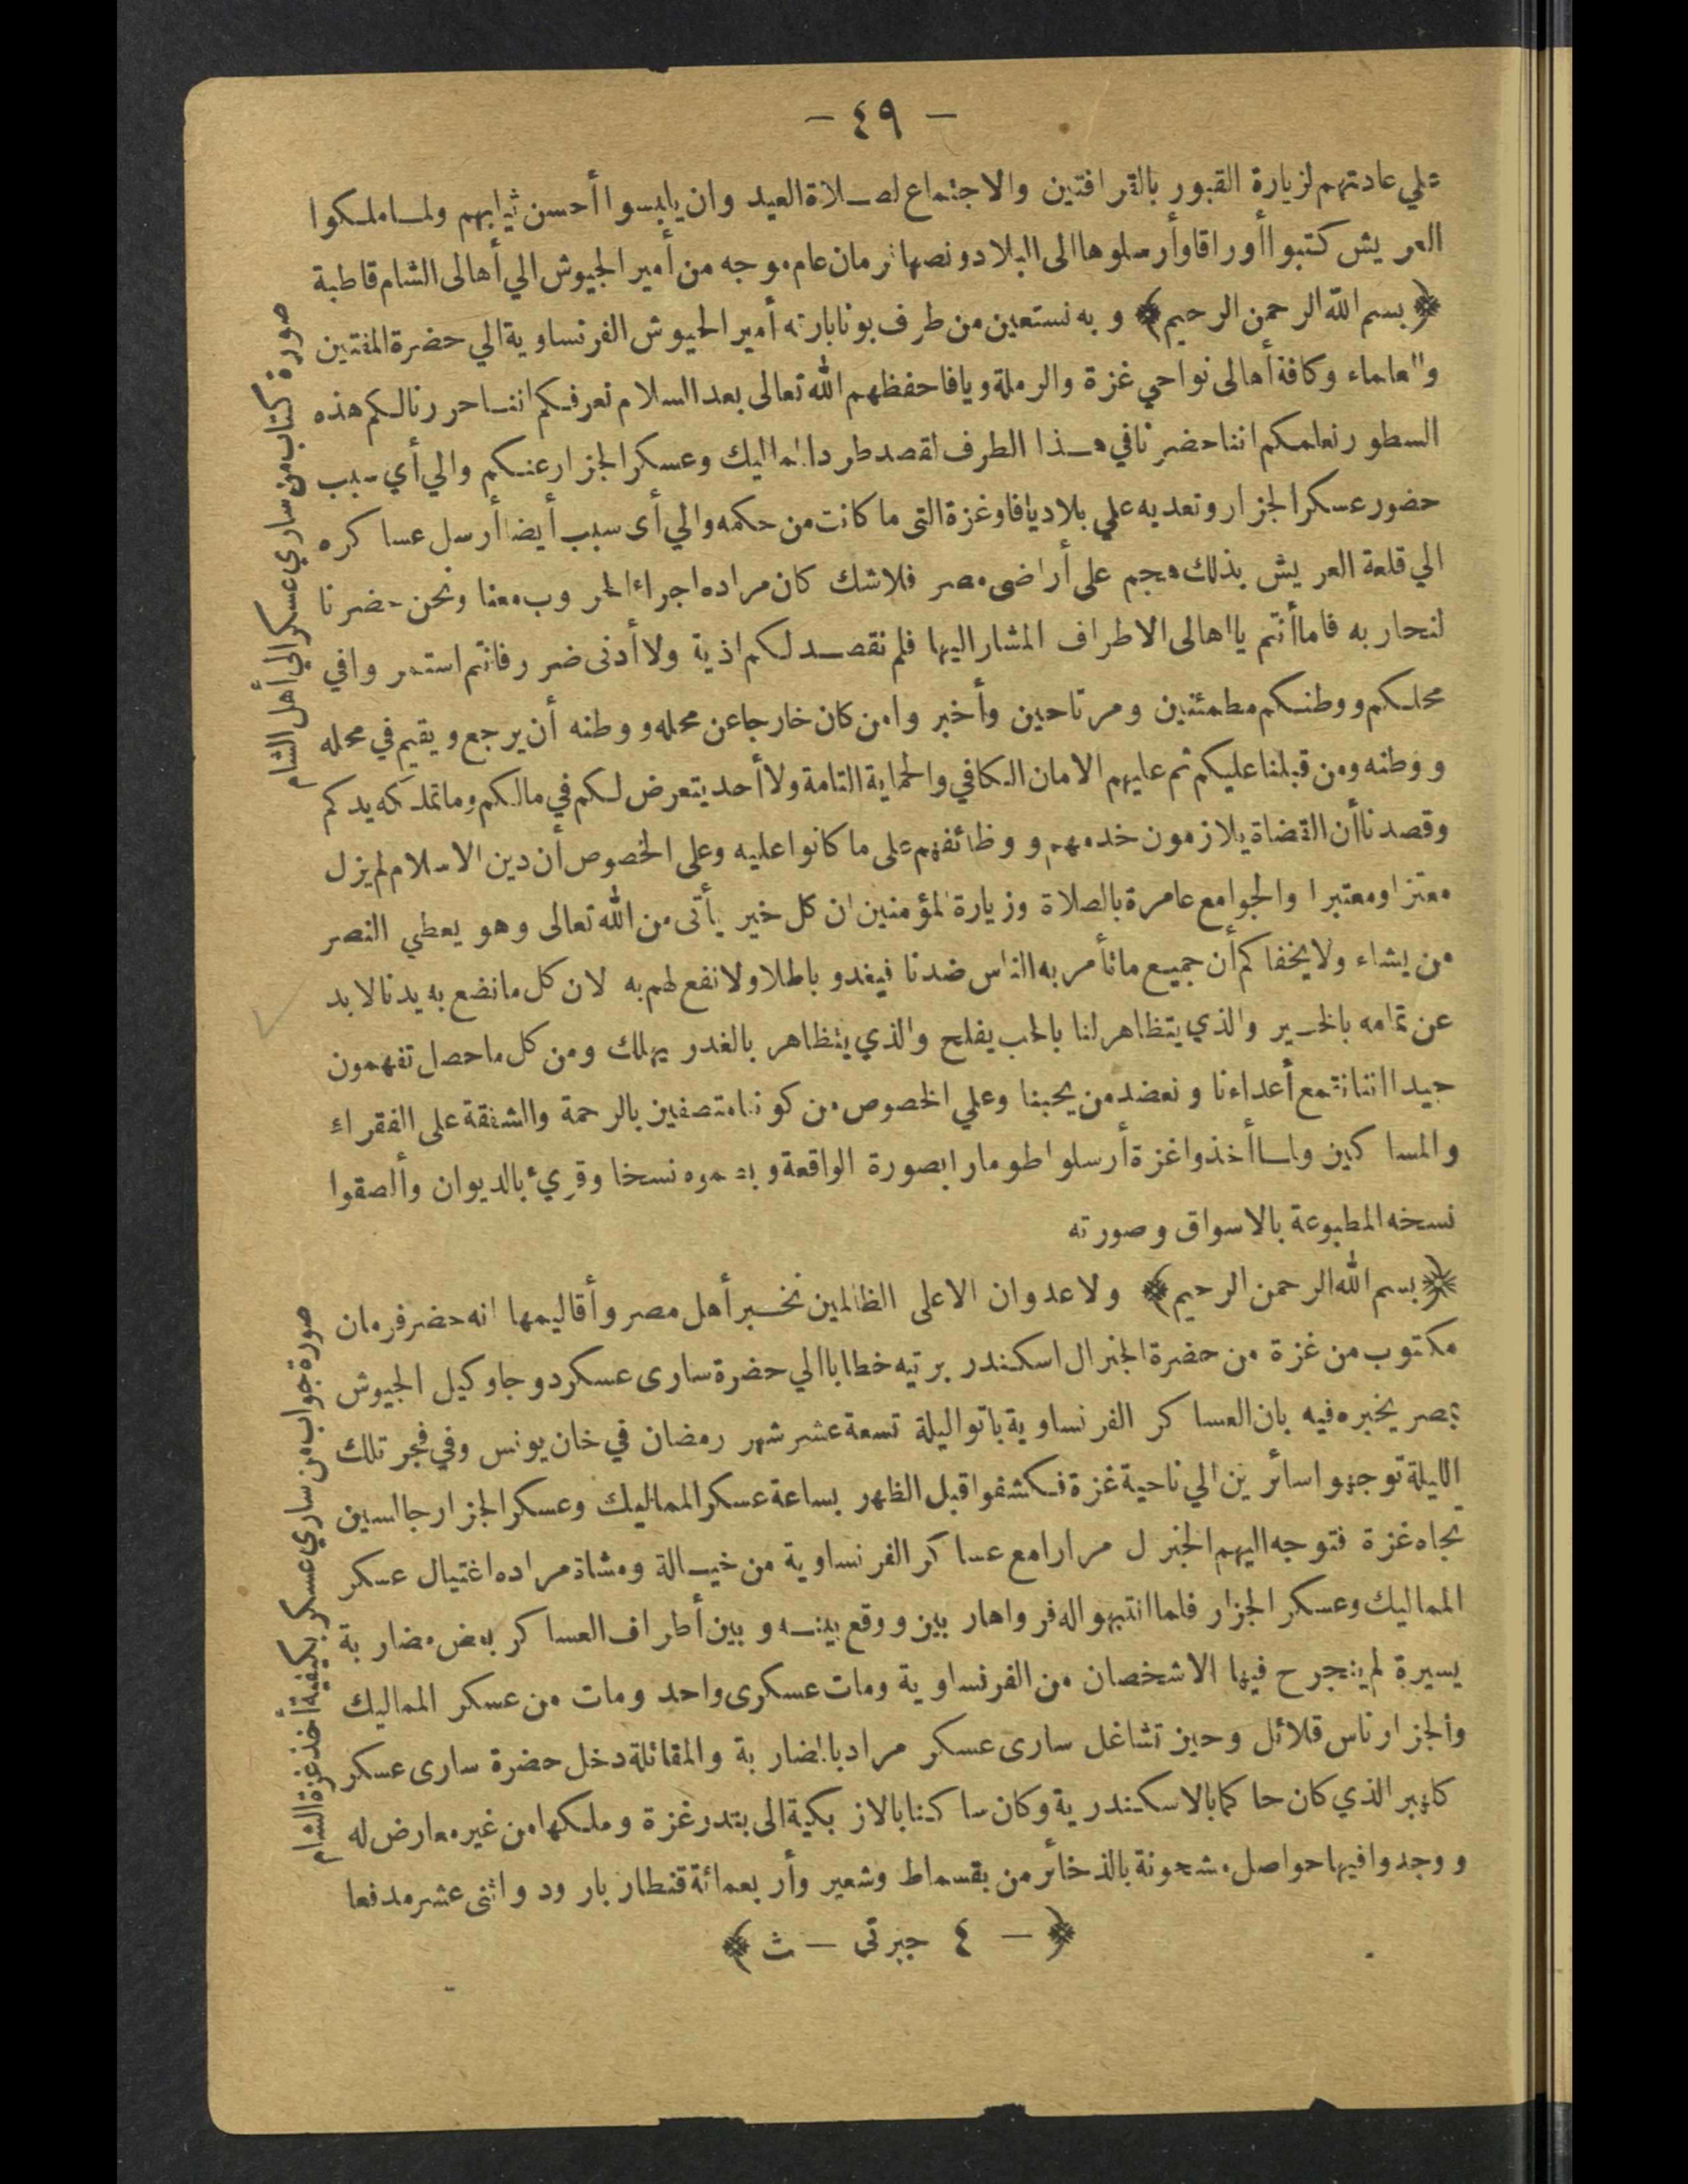 — ٤٩ —
على عادتهم لزيارة القبور بالقرافتين والاجتماع لصلاة العيد وان يلبسوا أحسن ثيابهم ولما ملكوا
العريش كتبوا أوراقا وأرسلوها الى البلاد ونصها فرمان عام موجه من أمير الجيوش الي أهالى الشام قاطبة
﴿بسم الله الرحمن الرحيم﴾ وبه نستعين من طرف بونابارته أمير الجيوش الفرنساوية الي حضرة المفتين
والعلماء وكافة أهالى نواحي غزة والرملة ويافا حفظهم الله تعالى بعد السلام نعرفكم اننا حررنا لكم هذه
السطور نعلمكم اننا حضرنا في هذا الطرف لقصد طرد المماليك وعسكر الجزار عنكم والي أي سبب
حضور عسكر الجزار وتعديه علي بلاد يافا وغزة التى ما كانت من حكمه والي أى سبب أيضا أرسل عساكره
الي قلعة العريش بذلك هجم على أراضى مصر فلاشك كان مراده اجراء الحروب معنا ونحن حضرنا
لنحاربه فاما أنتم يا اهالى الاطراف المشار اليها فلم نقصد لكم اذية ولا أدنى ضرر فانتم استمروا في
محلكم ووطنكم مطمئنين ومرتاحين وأخبروا من كان خارجا عن محله ووطنه أن يرجع ويقيم في محله
ووطنه ومن قبلنا عليكم ثم عليهم الامان الكافي والحماية التامة ولا أحد يتعرض لكم في مالكم وما تملكه يدكم
وقصدنا أن القضاة يلازمون خدمهم ووظائفهم على ما كانوا عليه وعلى الخصوص أن دين الاسلام لم يزل
معتزا ومعتبرا والجوامع عامرة بالصلاة وزيارة المؤمنين ان كل خير يأتى من الله تعالى وهو يعطي النصر
من يشاء ولا يخفاكم أن جميع ما تأمر به الناس ضدنا فيغدو باطلا ولا نفع لهم به لان كل ما نضع به يدنا لا بد
عن تمامه بالخير والذي يتظاهر لنا بالحب يفلح والذي يتظاهر بالغدر يهلك ومن كل ما حصل تفهمون
جيدا اننا نقمع أعداءنا ونعضد من يحبنا وعلي الخصوص من كوننا متصفين بالرحمة والشفقة على الفقراء
والمساكين ولما أخذوا غزة أرسلوا طومارا بصورة الواقعة وبصموه نسخا وقرئ بالديوان وألصقوا
نسخه المطبوعة بالاسواق وصورته
﴿بسم الله الرحمن الرحيم﴾ ولا عدوان الا على الظالمين نخبر أهل مصر وأقاليمها انه حضر فرمان
مكتوب من غزة من حضرة الجنرال اسكندر برتيه خطابا الي حضرة سارى عسكر دوجا وكيل الجيوش
بمصر يخبره فيه بان العساكر الفرنساوية باتوا ليلة تسعة عشر شهر رمضان في خان يونس وفي فجر تلك
الليلة توجهوا سائرين الي ناحية غزة فكشفوا قبل الظهر بساعة عسكر المماليك وعسكر الجزار جالسين
تجاه غزة فتوجه اليهم الجنرل مرارا مع عساكر الفرنساوية من خيالة ومشاة مراده اغتيال عسكر
المماليك وعسكر الجزار فلما انتبهوا له فروا هاربين ووقع بينه وبين أطراف العساكر بعض مضاربة
يسيرة لم ينجرح فيها الا شخصان من الفرنساوية ومات عسكرى واحد ومات من عسكر المماليك
والجزار ناس قلائل وحين تشاغل سارى عسكر مراد بالمضاربة والمقاتلة دخل حضرة سارى عسكر
كلهبر الذي كان حاكما بالاسكندرية وكان ساكنا بالازبكية الى بندر غزة وملكها من غير معارض له
ووجدوا فيها حواصل مشحونة بالذخائر من بقسماط وشعير وأربعمائة قنطار بارود واثنى عشر مدفعا
﴿— ٤ جبرتى — ث﴾
صورة كتاب من ساري عسكر الي أهل الشام
صورة جواب من ساري عسكر بكيفية أخذ غزة الشام